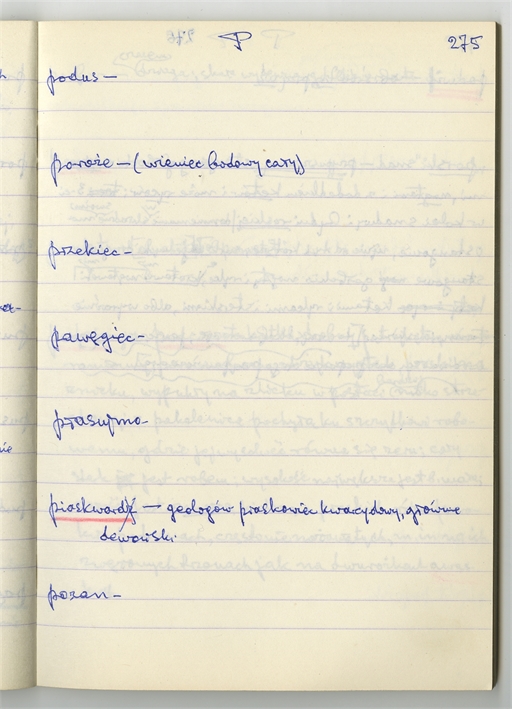 P 275
podus —
poroże — (wieniec bodowy cały)
przekiec —
pawęgiec —
ptasujmo —
piaskwardź — geologów piaskowiec kwarcydowy, głównie
dewoński.
pozan —